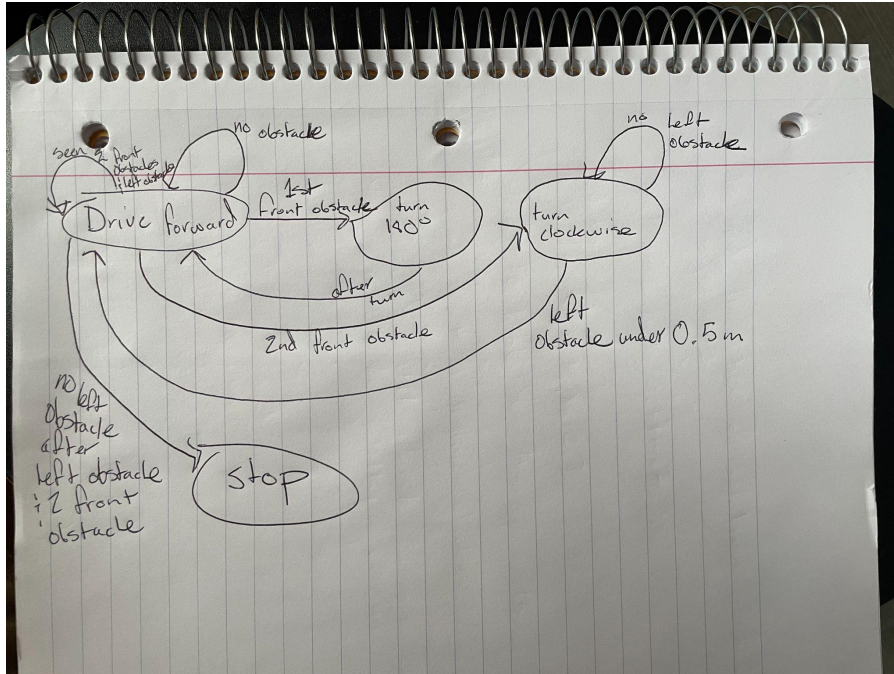 no obstacle
seen 2 front
obstacles
& left obstacle
Drive forward
1st
front obstacle
turn
180°
no left
obstacle
turn
clockwise
after
turn
2nd front obstacle
left
obstacle under 0.5m
no left
obstacle
after
left obstacle
& 2 front
obstacle
stop